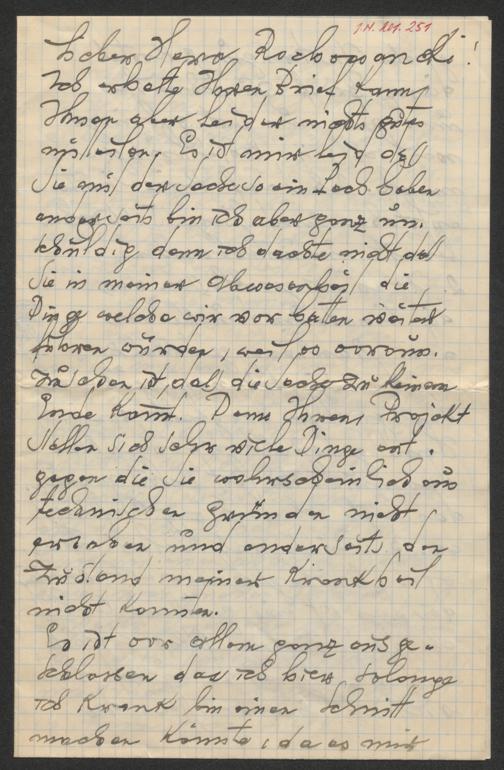 J.N. 201.251
Lieber Herr !
Ich erhalte Ihren Brief kann
Ihnen aber leider nichts gutes
mitteilen. Es ist mir leid daß
Sie mit der Sache so ein Pech haben
anderseits bin ich aber ganz un-
schuldig denn ich dachte nicht daß
Sie in meiner Abwesenheit die
Dinge welche wir vor hatten weiter
führen würden, weil es voraus-
zusehen ist, daß die Sache zu keinem
Ende kommt. Denn Ihrem Projekt
stellen sich sehr viele Dinge ent-
gegen die Sie wahrscheinlich aus
technischen gründen nicht
ersehen und anderseits den
Zustand meiner Krankheit
nicht kannten.
Es ist vor allem ganz ausge-
schlossen das ich hier solange
ich Krank bin einen Schritt
machen könnte, da es mir